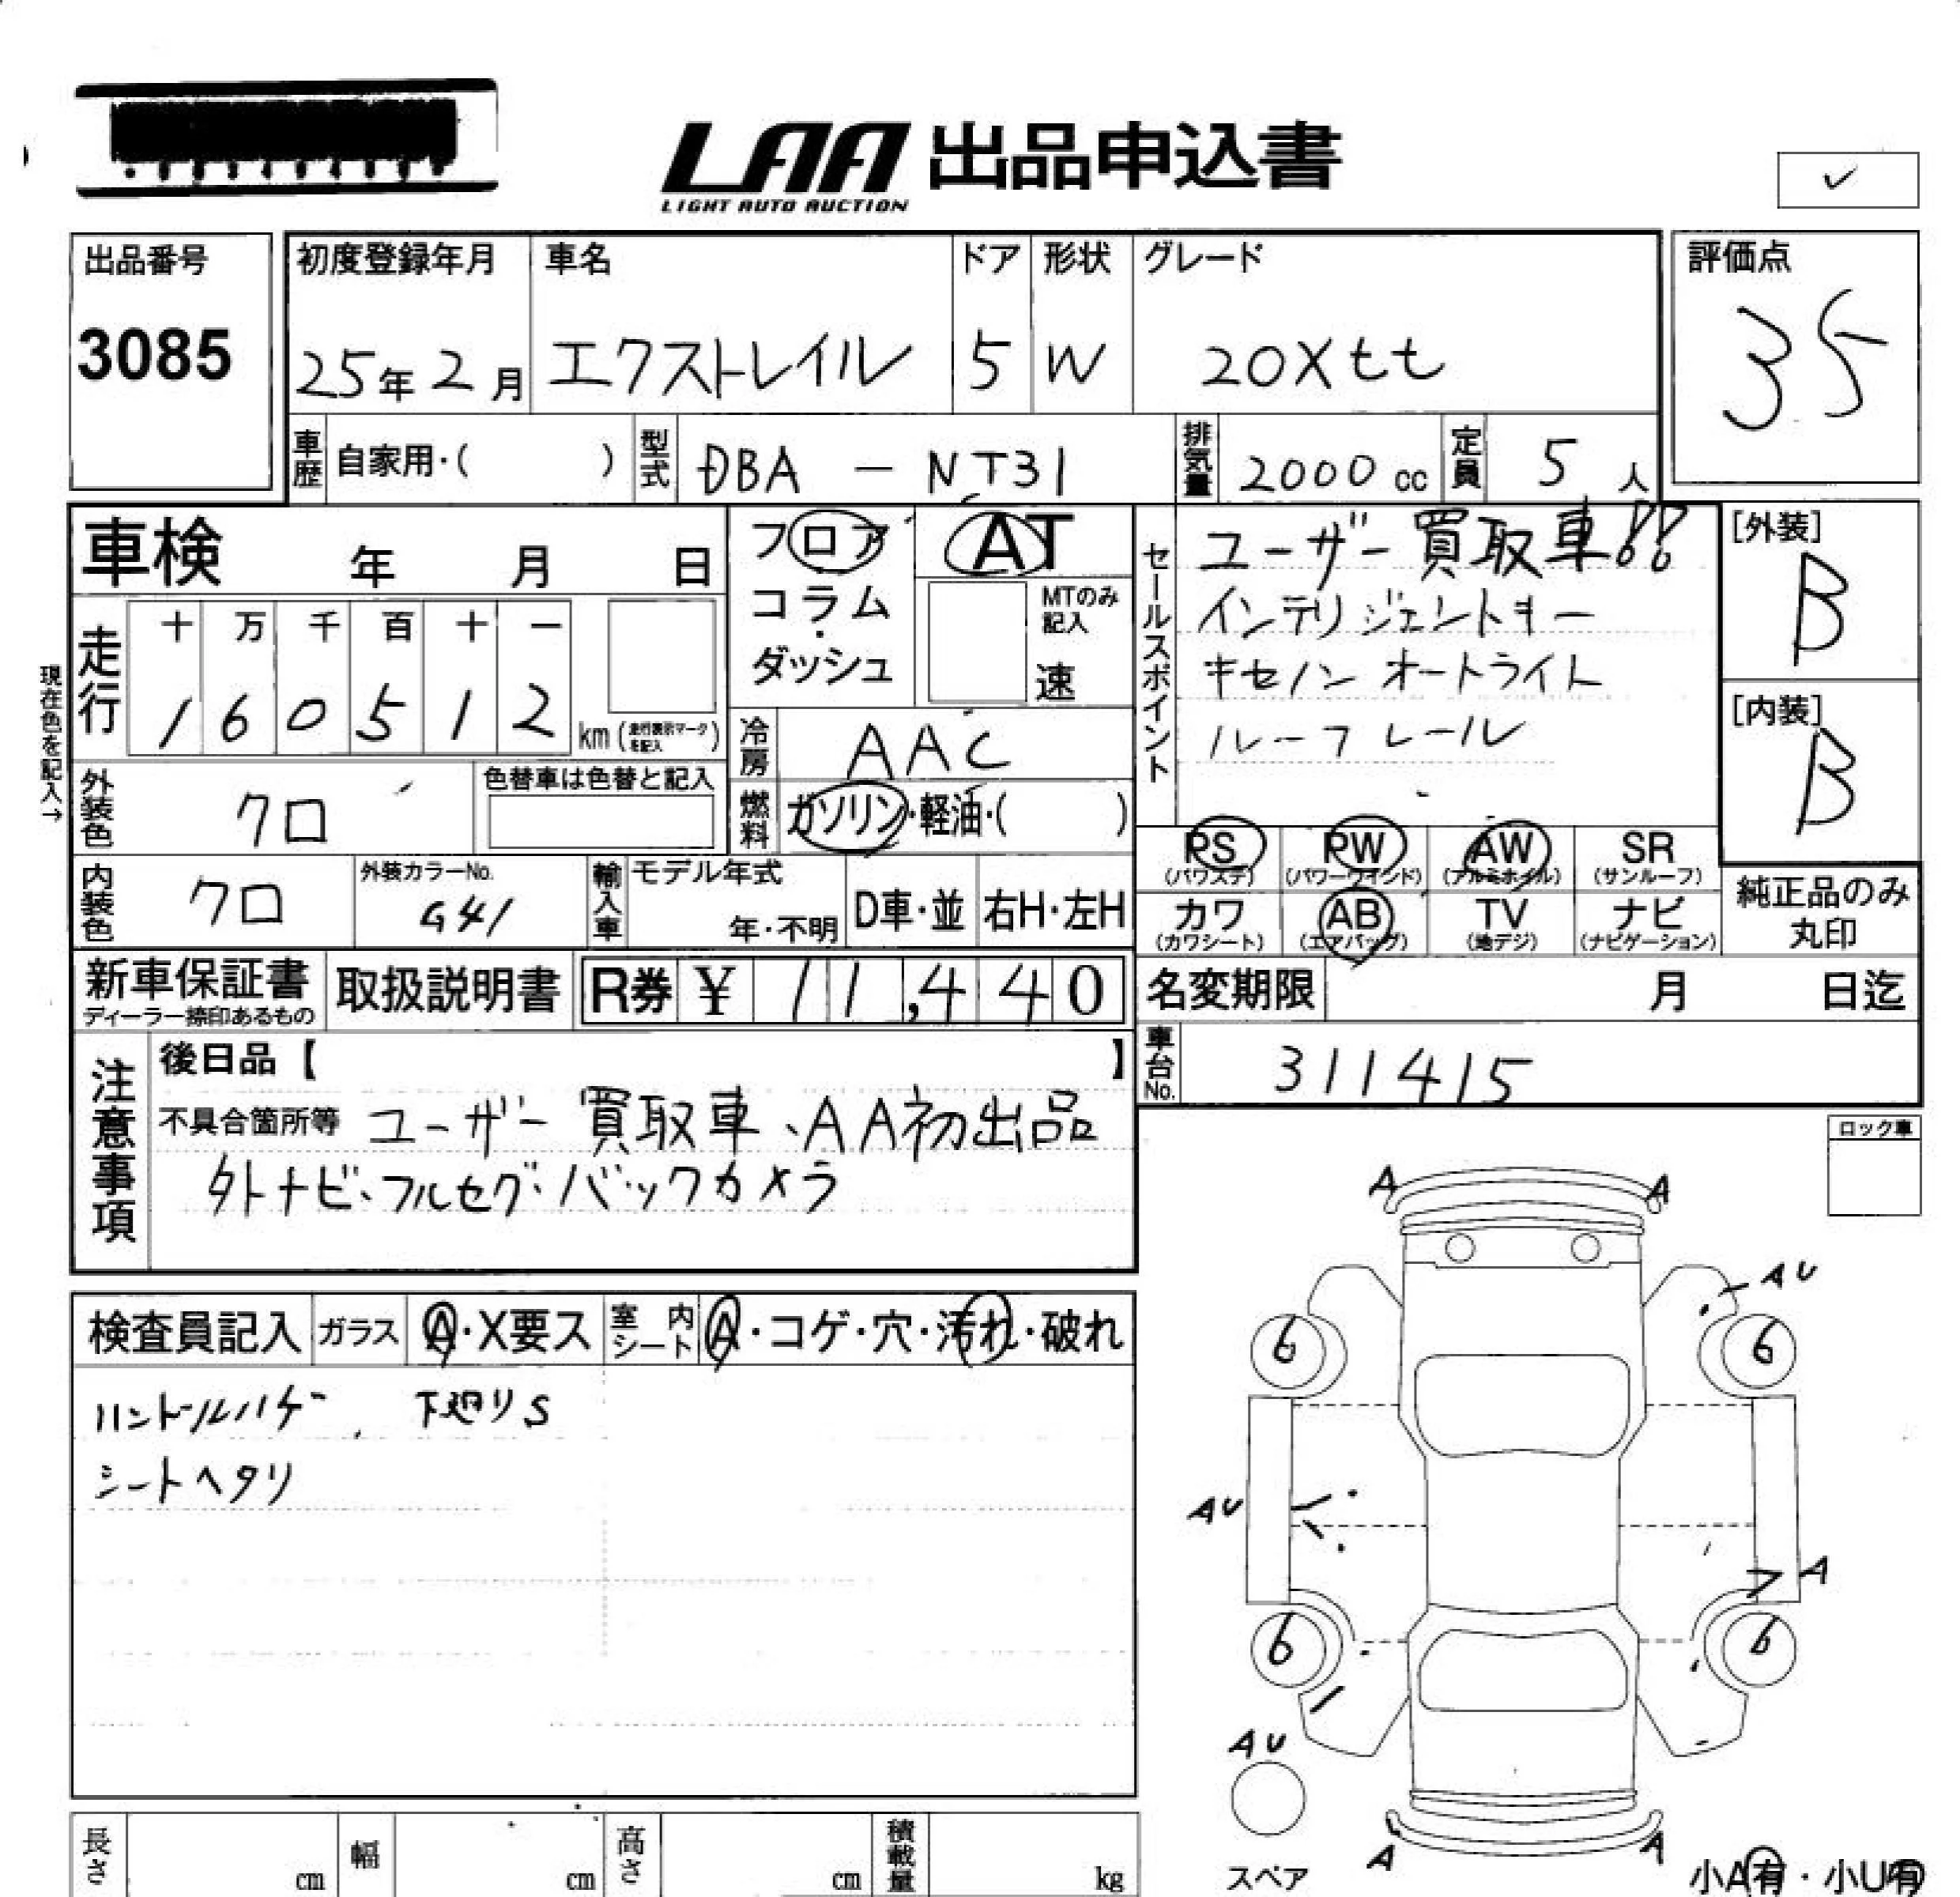 LAA 出品申込書
LIGHT AUTO AUCTION
✓
出品番号
3085
初度登録年月 車名 ドア 形状 グレード
25年 2月 エクストレイル 5 W 20Xtt
評価点
35
車歴 自家用・( ) 型式 DBA - NT31 排気量 2000 cc 定員 5 人
車検 年 月 日
フロア
コラム
・
ダッシュ
AT
MTのみ記入
速
セールスポイント
ユーザー買取車!!
インテリジェントキー
キセノン オートライト
ルーフレール
[外装]
B
[内装]
B
現在色を記入→
走行 十 万 千 百 十 一
1 6 0 5 1 2 km (走行表示マークを記入)
冷房 AAC
外装色 クロ
色替車は色替と記入
燃料 ガソリン・軽油・( )
PS (パワステ) PW (パワーウインド) AW (アルミホイル) SR (サンルーフ)
カワ (カワシート) AB (エアバッグ) TV (地デジ) ナビ (ナビゲーション)
純正品のみ
丸印
内装色 クロ 外装カラーNo. G41 輸入車 モデル年式 年・不明 D車・並 右H・左H
新車保証書
ディーラー捺印あるもの
取扱説明書 R券 ¥ 11,440
名変期限 月 日迄
車台No. 311415
注意事項
後日品【 】
不具合箇所等 ユーザー買取車、AA初出品
外ナビ・フルセグ・バックカメラ
ロック車
検査員記入 ガラス A・X要ス 室内シート A・コゲ・穴・汚れ・破れ
ハンドルハゲ 下廻りS
シートヘタリ
A A
AU
6 6
AU
A
6 6
AU
A A
スペア
小A有・小U有
長さ cm 幅 cm 高さ cm 積載量 kg